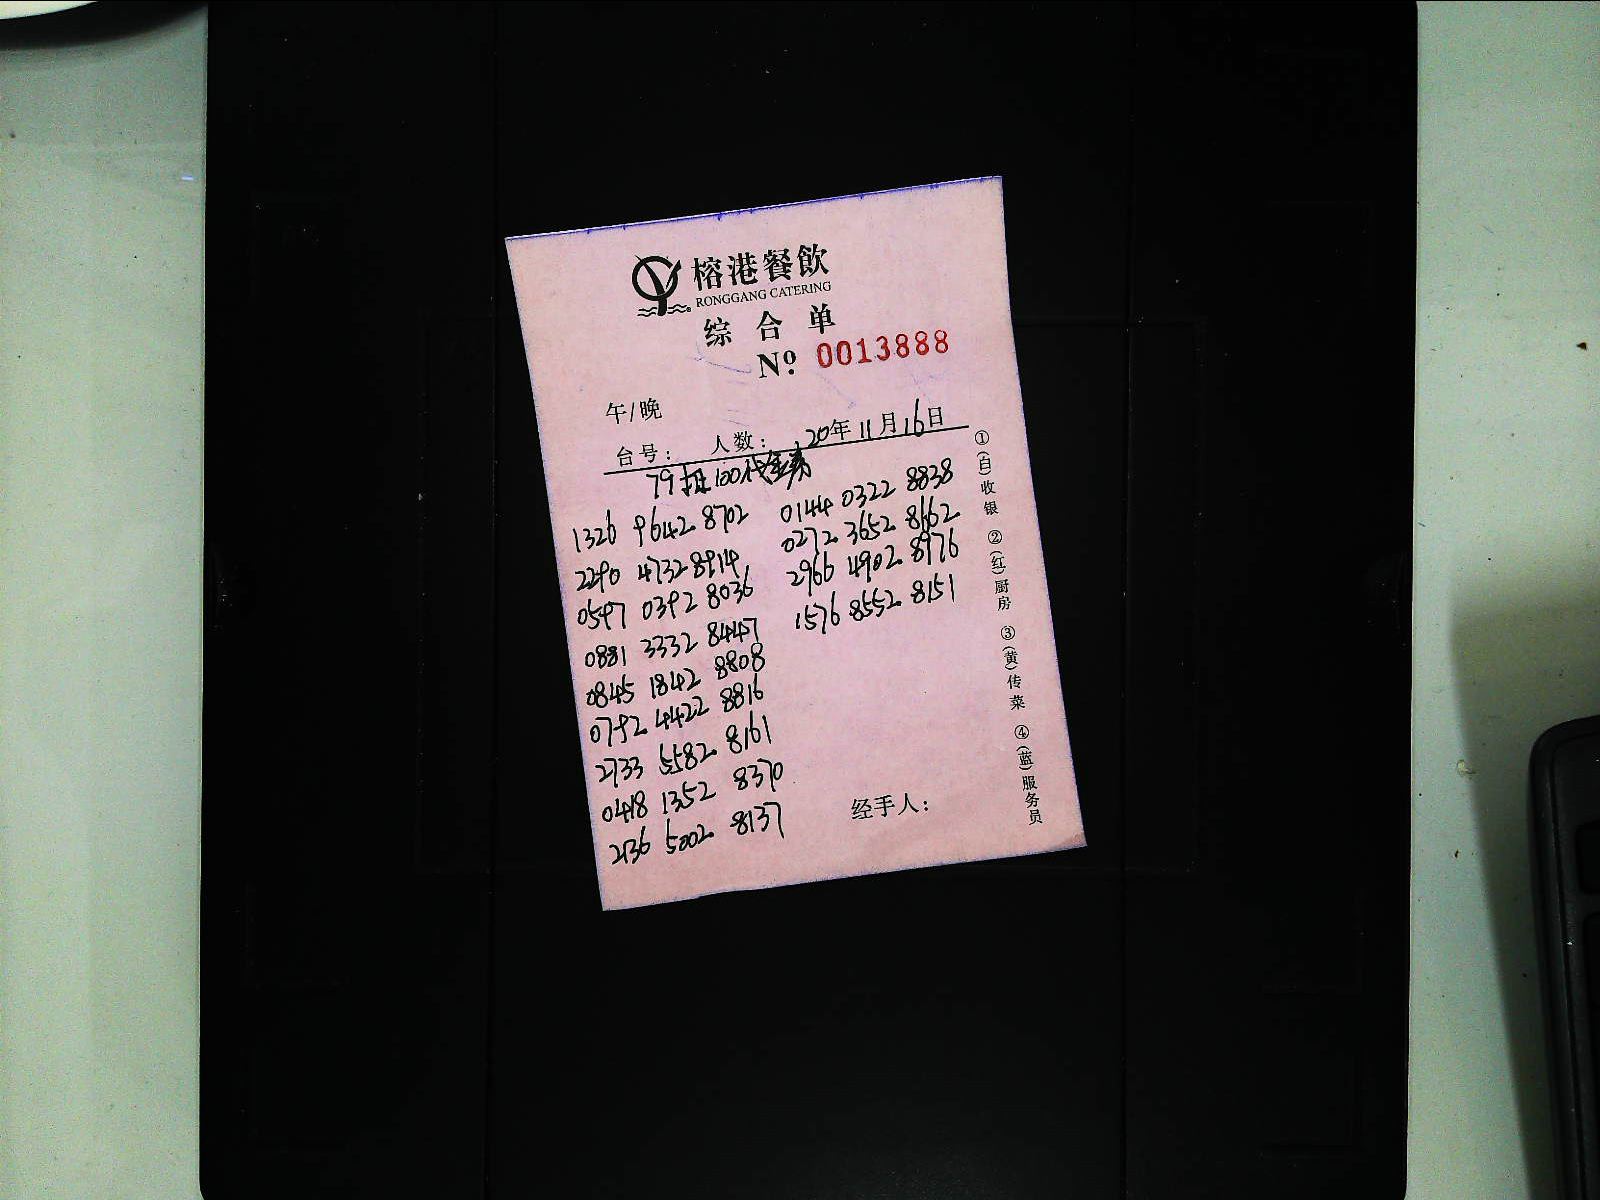 榕港餐飲
RONGGANG CATERING
综合单
Nº 0013888
午/晚
台号： 人数： 20年11月16日
79抵100代金券
1326 9642 8702
2290 4732 8914
0597 0392 8036
0881 3332 8447
0845 1842 8808
0792 4422 8816
2733 5582 8161
0418 1352 8370
2136 5002 8137
0144 0322 8838
0272 3652 8662
2966 4902 8976
1576 8552 8151
经手人：
①(白)收银 ②(红)厨房 ③(黄)传菜 ④(蓝)服务员